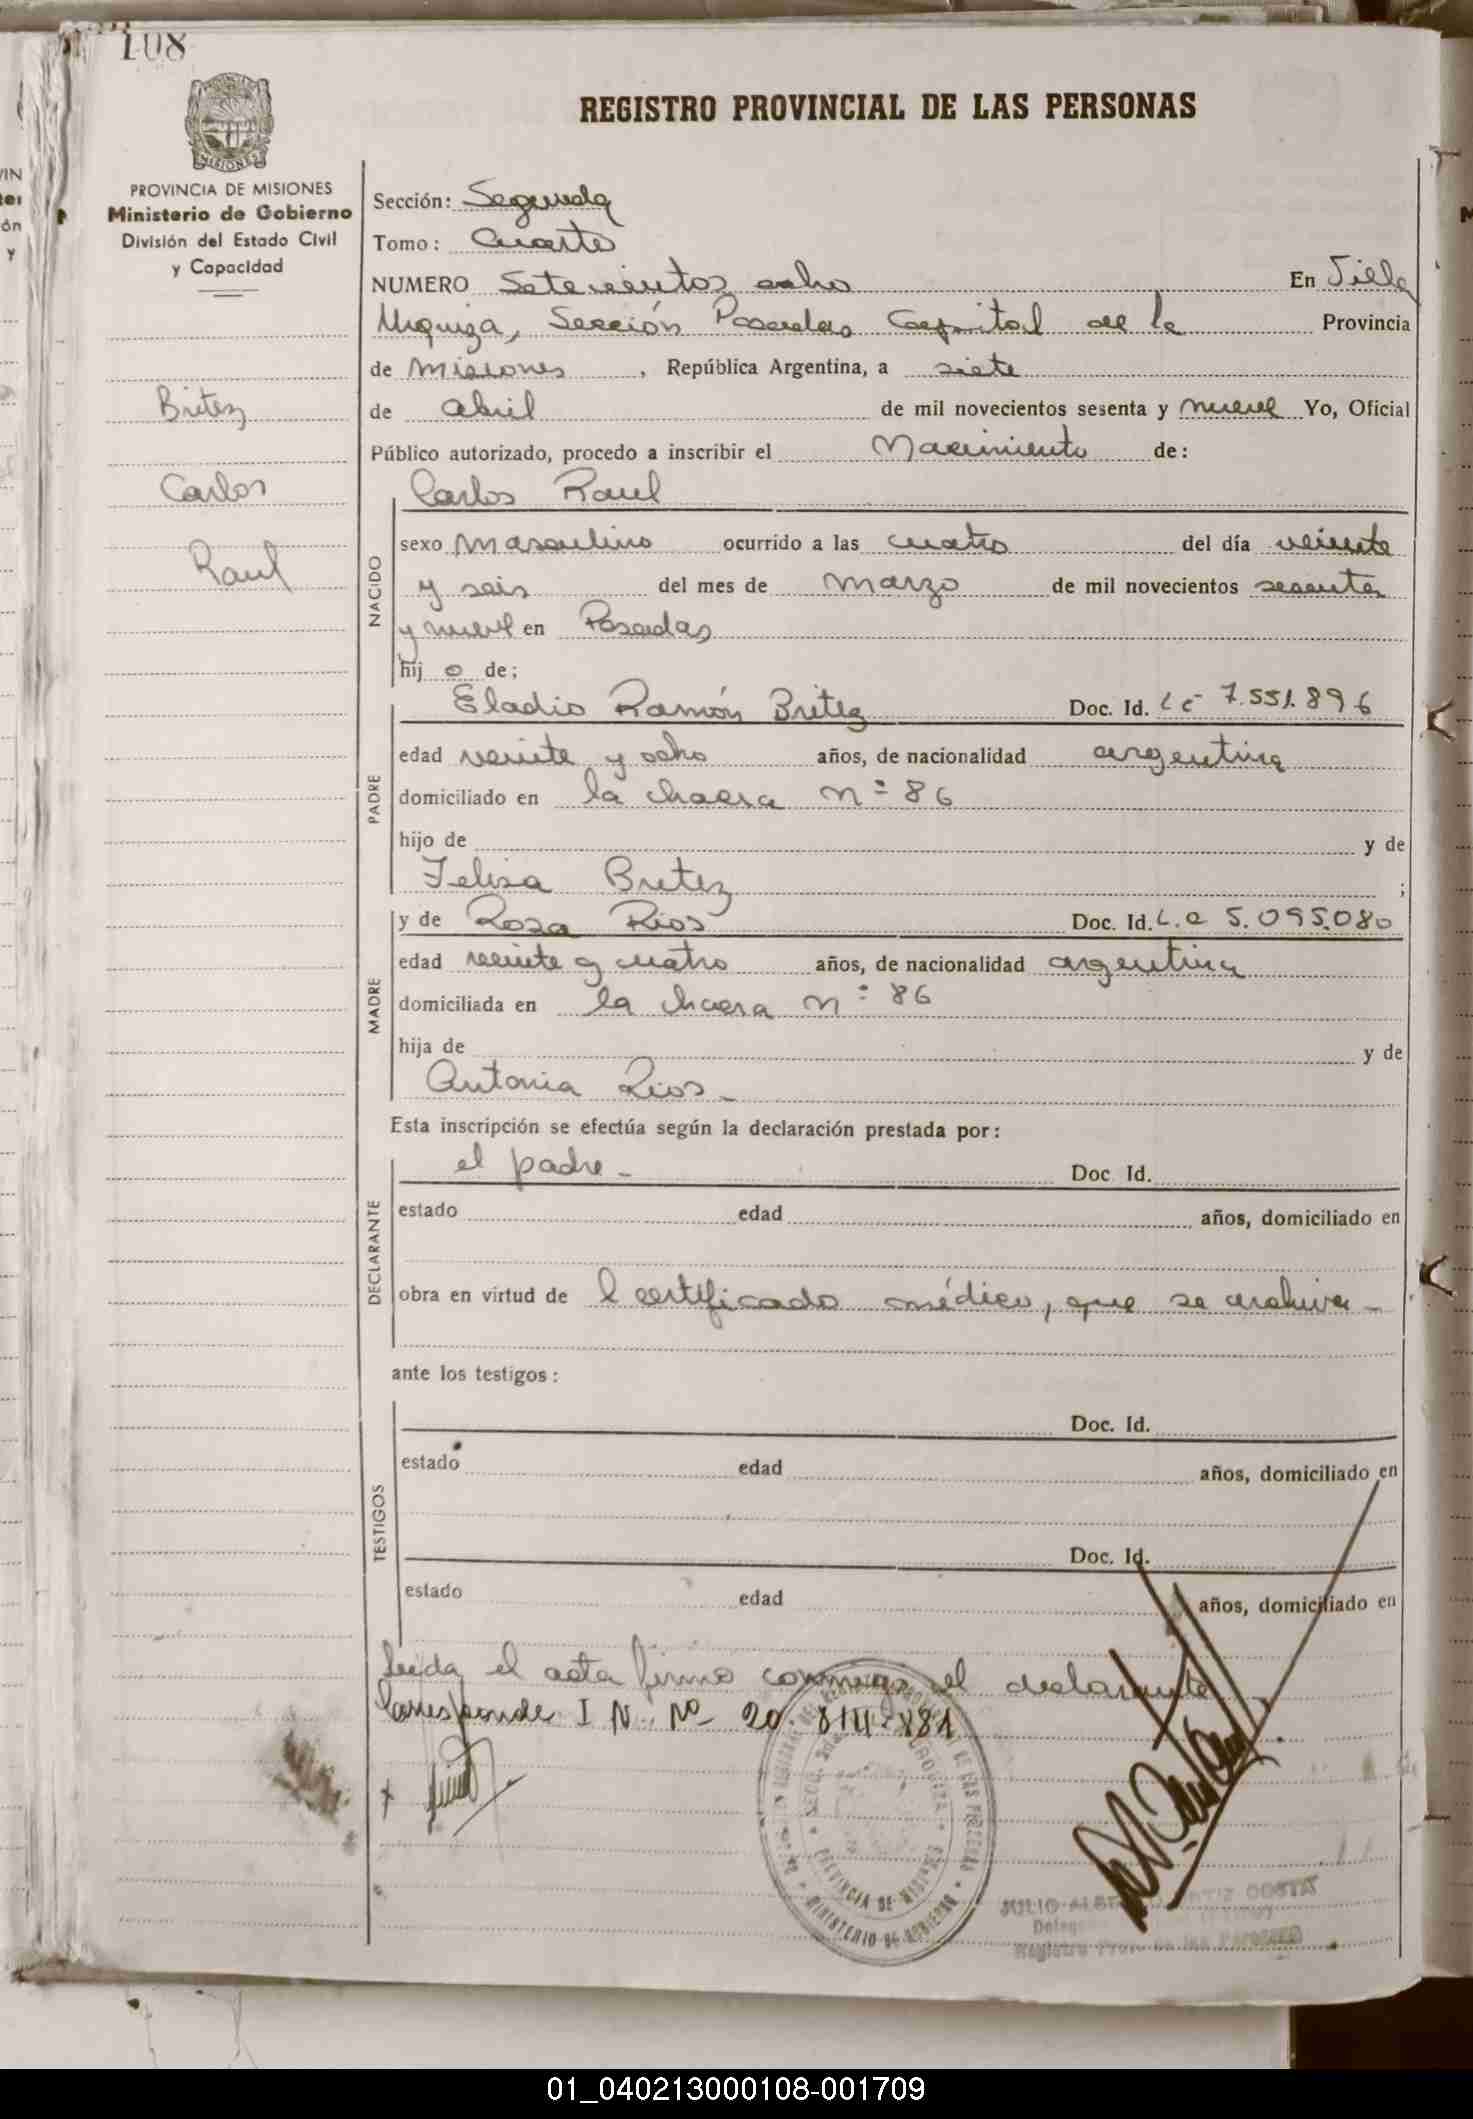 108
REGISTRO PROVINCIAL DE LAS PERSONAS
MISIONES
PROVINCIA DE MISIONES
Ministerio de Gobierno
División del Estado Civil
y Capacidad
Britez
Carlos
Raul
Sección: Segunda
Tomo: Cuarto
NUMERO Setecientos ocho En Villa
Urquiza, Sección Posadas Capital de la Provincia
de Misiones, República Argentina, a siete
de abril de mil novecientos sesenta y nueve Yo, Oficial
Público autorizado, procedo a inscribir el Nacimiento de:
NACIDO
Carlos Raul
sexo Masculino ocurrido a las cuatro del día veinte
y seis del mes de marzo de mil novecientos sesenta
y nueve en Posadas
hij o de:
PADRE
Eladio Ramón Britez Doc. Id. L e 7.551.896
edad veinte y ocho años, de nacionalidad argentina
domiciliado en la chacra nº 86
hijo de y de
Felisa Britez ;
MADRE
y de Rosa Rios Doc. Id. L.C 5.095.080
edad veinte y cuatro años, de nacionalidad argentina
domiciliada en la chacra nº 86
hija de y de
Antonia Rios -
Esta inscripción se efectúa según la declaración prestada por:
DECLARANTE
el padre - Doc. Id.
estado edad años, domiciliado en
obra en virtud de l certificado médico, que se archiva -
ante los testigos:
TESTIGOS
Doc. Id.
estado edad años, domiciliado en
Doc. Id.
estado edad años, domiciliado en
Leida el acta firma conmigo el declarante
Corresponde I N. Nº 20.811.881
PROVINCIA DE MISIONES
MINISTERIO DE GOBIERNO
JULIO COSTA
01_040213000108-001709